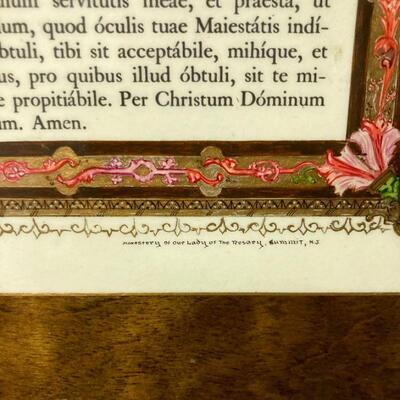 servitutis meae, et praesta, ut
um, quod óculis tuae Maiestátis indí-
btuli, tibi sit acceptábile, mihíque, et
us, pro quibus illud óbtuli, sit te mi-
e propitiábile. Per Christum Dóminum
um. Amen.
Monastery of Our Lady of The Rosary, Summit, N.J.